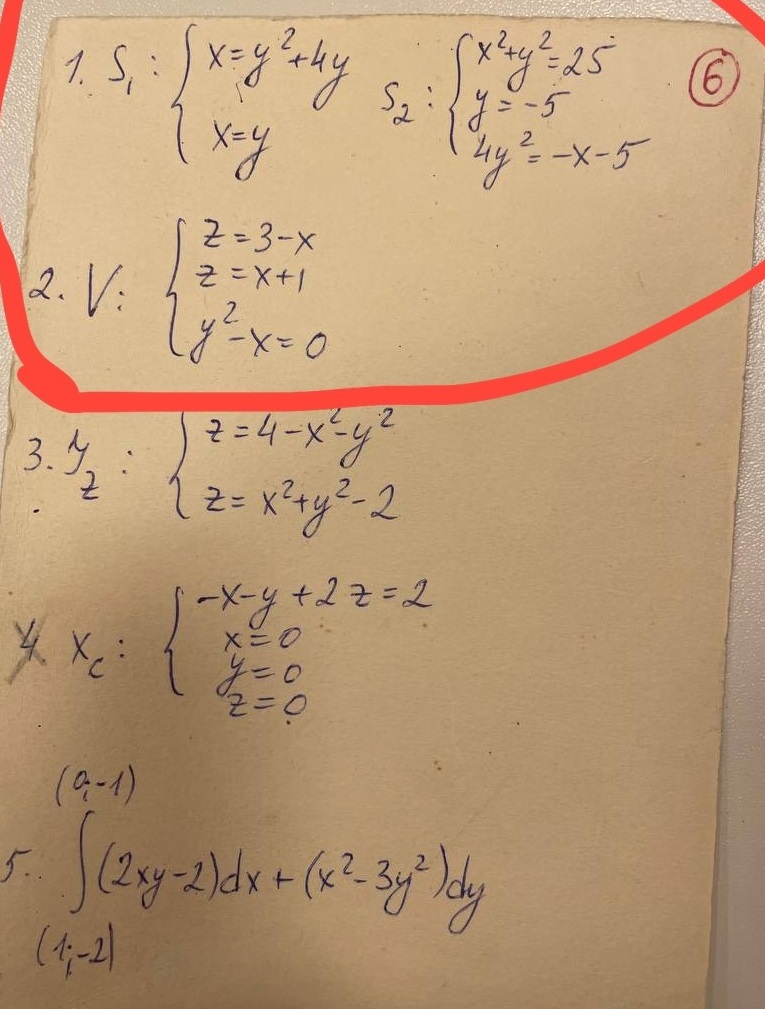 1. S₁: { x=y²+4y
x=y
S₂: { x²+y²=25
y=-5
4y²=-x-5
6
2. V: { z=3-x
z=x+1
y²-x=0
3. Y_z: { z=4-x²-y²
z=x²+y²-2
4 x_c: { -x-y+2z=2
x=0
y=0
z=0
(0;-1)
5. ∫(2xy-2)dx+(x²-3y²)dy
(1;-2)